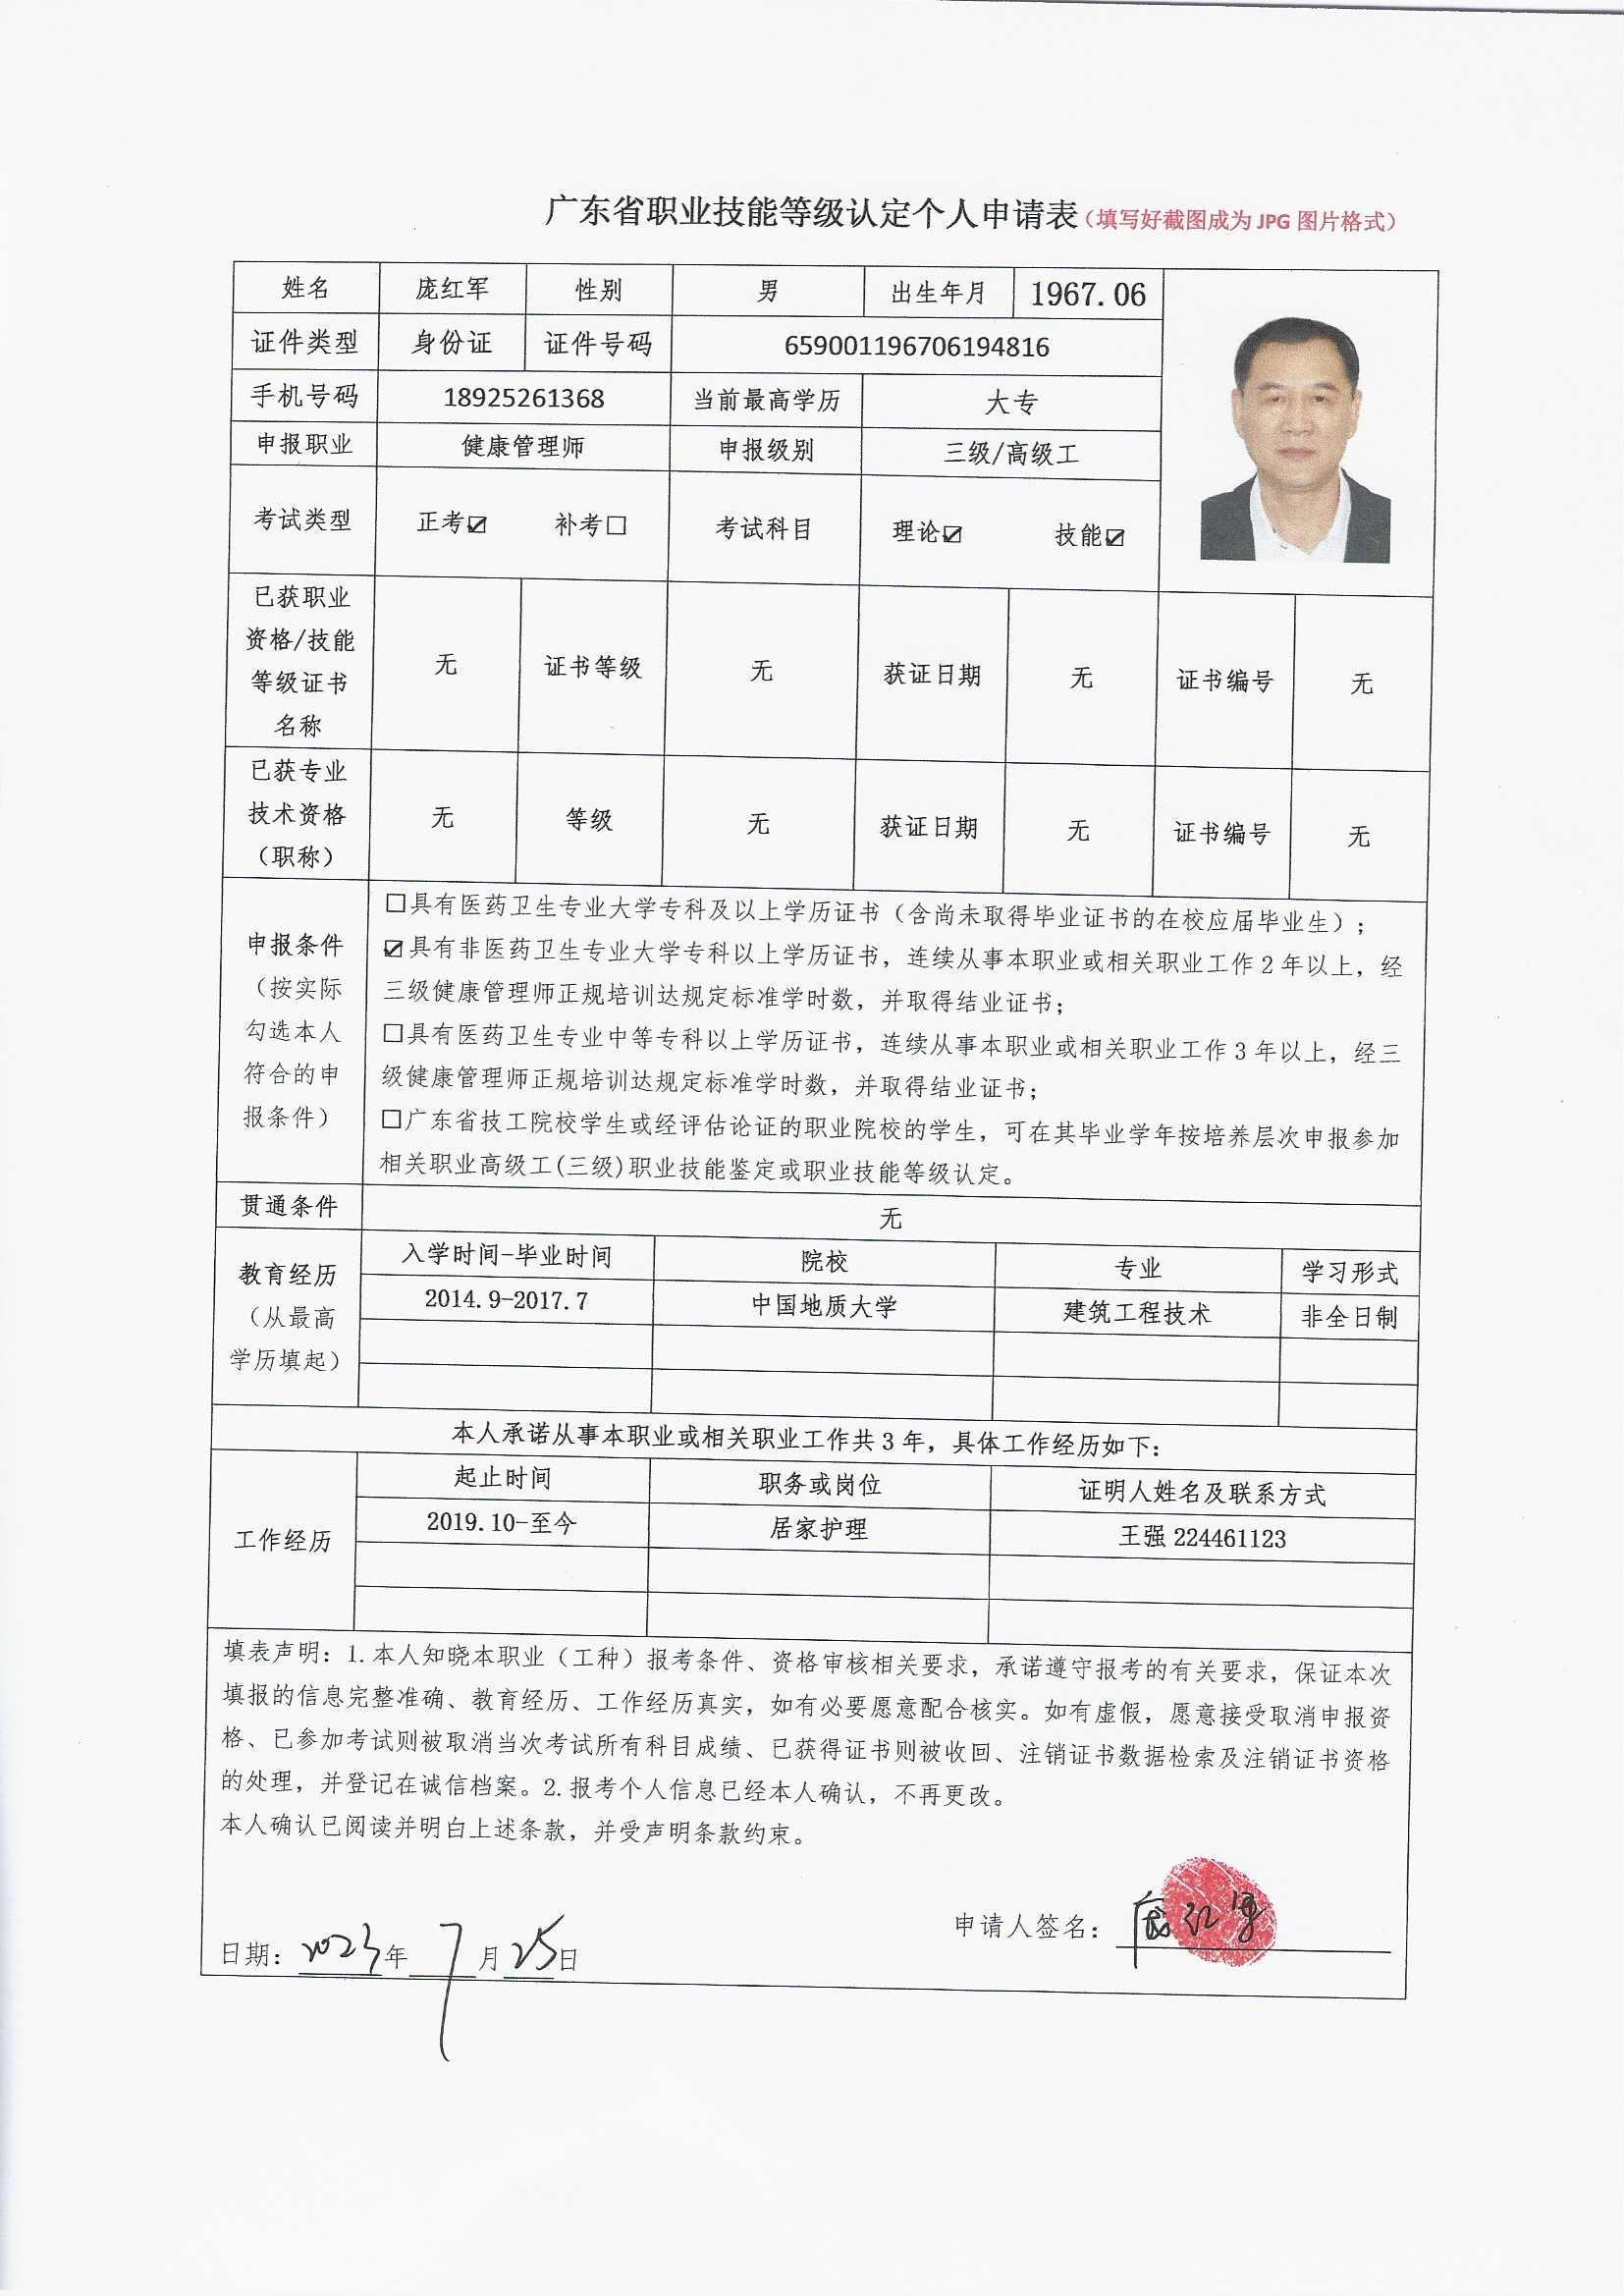 广东省职业技能等级认定个人申请表（填写好截图成为 JPG 图片格式）
姓名 庞红军 性别 男 出生年月 1967.06
证件类型 身份证 证件号码 659001196706194816
手机号码 18925261368 当前最高学历 大专
申报职业 健康管理师 申报级别 三级/高级工
考试类型 正考☑ 补考☐ 考试科目 理论☑ 技能☑
已获职业
资格/技能
等级证书
名称
无 证书等级 无 获证日期 无 证书编号 无
已获专业
技术资格
（职称）
无 等级 无 获证日期 无 证书编号 无
申报条件
（按实际
勾选本人
符合的申
报条件）
☐具有医药卫生专业大学专科及以上学历证书（含尚未取得毕业证书的在校应届毕业生）；
☑具有非医药卫生专业大学专科以上学历证书，连续从事本职业或相关职业工作 2 年以上，经
三级健康管理师正规培训达规定标准学时数，并取得结业证书；
☐具有医药卫生专业中等专科以上学历证书，连续从事本职业或相关职业工作 3 年以上，经三
级健康管理师正规培训达规定标准学时数，并取得结业证书；
☐广东省技工院校学生或经评估论证的职业院校的学生，可在其毕业学年按培养层次申报参加
相关职业高级工(三级)职业技能鉴定或职业技能等级认定。
贯通条件 无
教育经历
（从最高
学历填起）
入学时间-毕业时间 院校 专业 学习形式
2014.9-2017.7 中国地质大学 建筑工程技术 非全日制
本人承诺从事本职业或相关职业工作共 3 年，具体工作经历如下：
工作经历
起止时间 职务或岗位 证明人姓名及联系方式
2019.10-至今 居家护理 王强 224461123
填表声明：1.本人知晓本职业（工种）报考条件、资格审核相关要求，承诺遵守报考的有关要求，保证本次
填报的信息完整准确、教育经历、工作经历真实，如有必要愿意配合核实。如有虚假，愿意接受取消申报资
格、已参加考试则被取消当次考试所有科目成绩、已获得证书则被收回、注销证书数据检索及注销证书资格
的处理，并登记在诚信档案。2.报考个人信息已经本人确认，不再更改。
本人确认已阅读并明白上述条款，并受声明条款约束。
申请人签名：庞红军
日期：2023年 7 月 25日